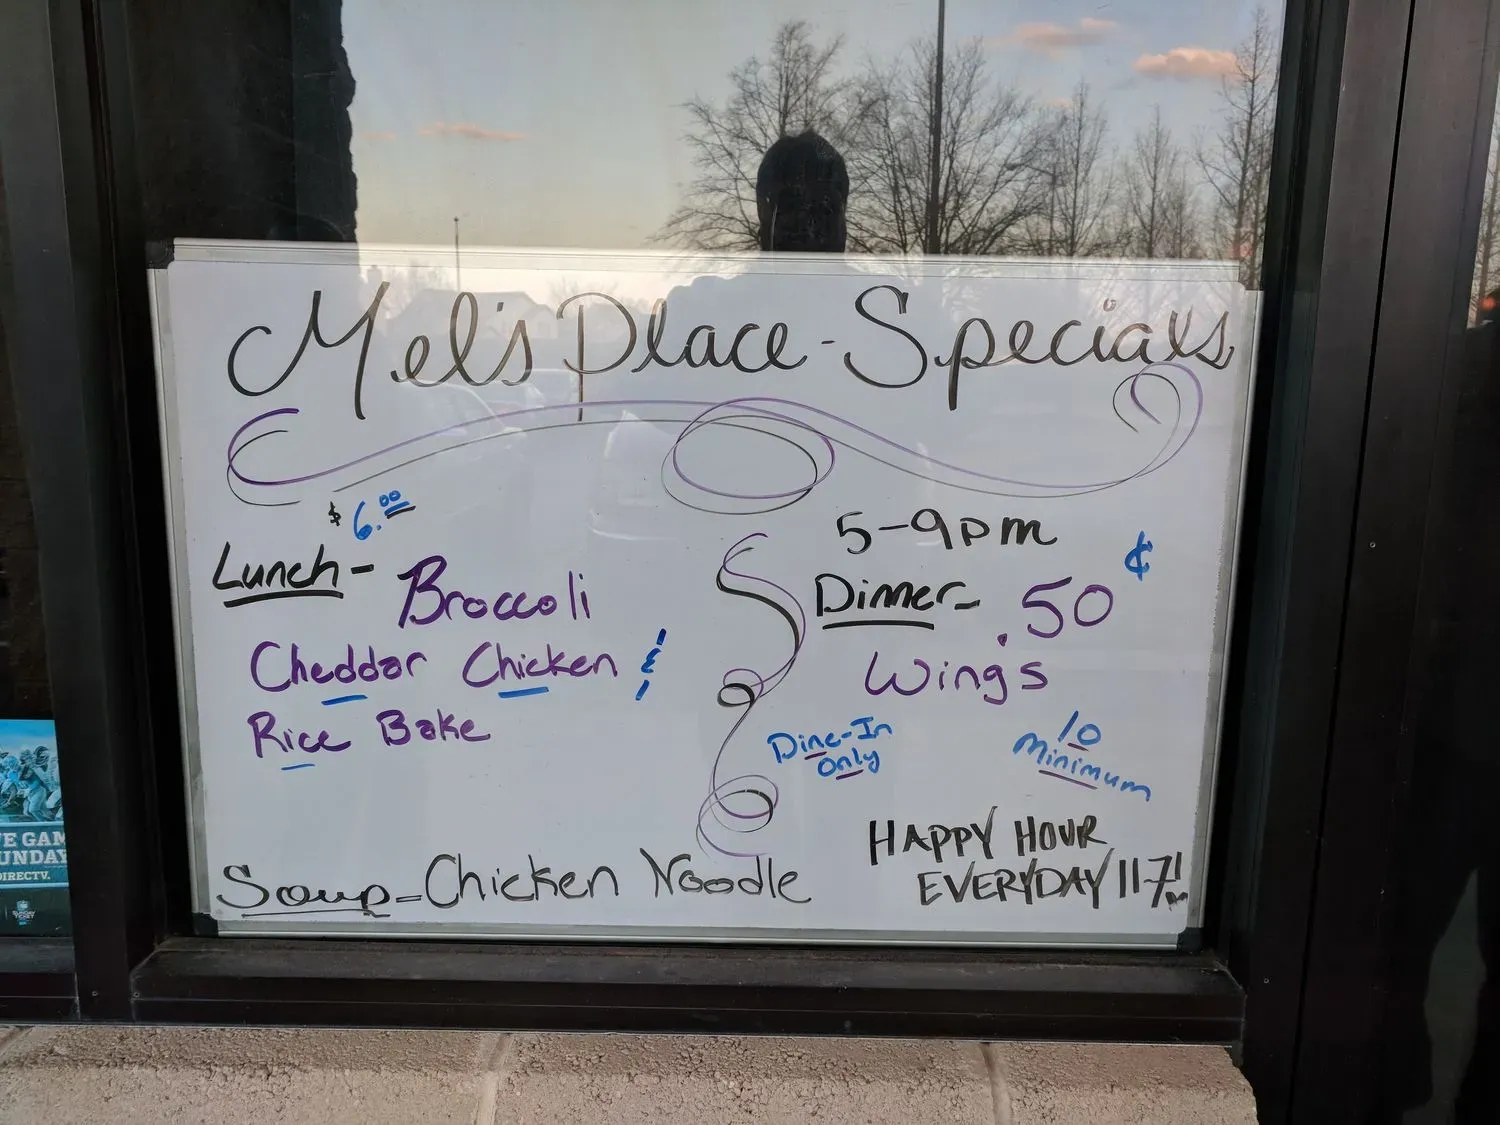 Mel's Place - Specials
$6.00
Lunch - Broccoli
Cheddar Chicken &
Rice Bake
5-9pm
Dinner - .50¢
Wings
Dine-In
Only
10
Minimum
HAPPY HOUR
EVERYDAY 11-7!
Soup - Chicken Noodle
UNDAY
DIRECTV.